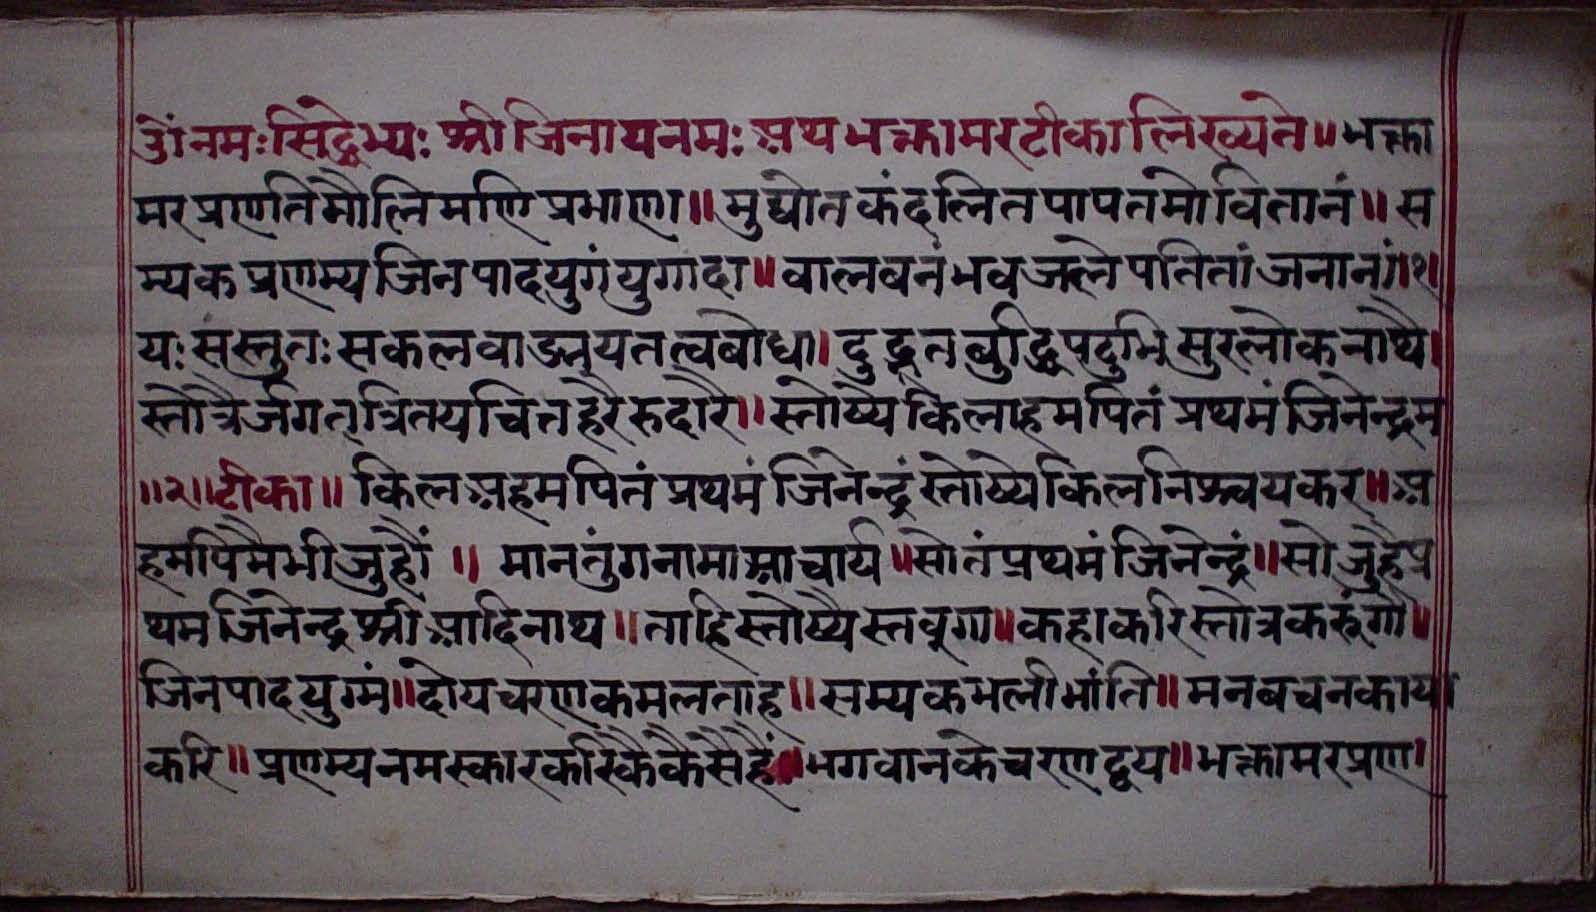 ॐ नमः सिद्धेभ्यः श्री जिनाय नमः अथ भक्तामर टीका लिख्यते॥ भक्ता
मर प्रणति मौलि मणि प्रभाणा॥ मुद्योत कं दलित पाप तमो वितानं॥ स
म्यक प्रणम्य जिन पाद युगं युगादा॥ वालवनं भव जले पतितां जनानां।१।
यः संस्तुतः सकल वाङ्मय तत्वबोधा। दुद्भूत बुद्धि पटुभि सुरलोक नाथै।
स्तोत्रैर्जगत्त्रितय चित हरै रुदारै॥ स्तोष्ये किलाहमपि तं प्रथमं जिनेन्द्रम
॥२॥ टीका॥ किल अहमपि तं प्रथमं जिनेन्द्रं स्तोष्ये किल निश्चय कर॥ अ
हमपि मै भी जु हौं ॥ मानतुंग नामा आचार्य॥ सो तं प्रथमं जिनेन्द्रं॥ सो जु है प्र
थम जिनेन्द्र श्री आदिनाथ॥ ताहि स्तोष्यै स्तवूगा॥ कहा करि स्तोत्र करूंगौ॥
जिन पाद युग्मं॥ दोय चरण कमल ताहि॥ सम्यक भली भांति॥ मन बचन काय।
करि॥ प्रणम्य नमस्कार करिकै कैसै है॥ भगवान के चरण द्वय॥ भक्तामर प्रण।